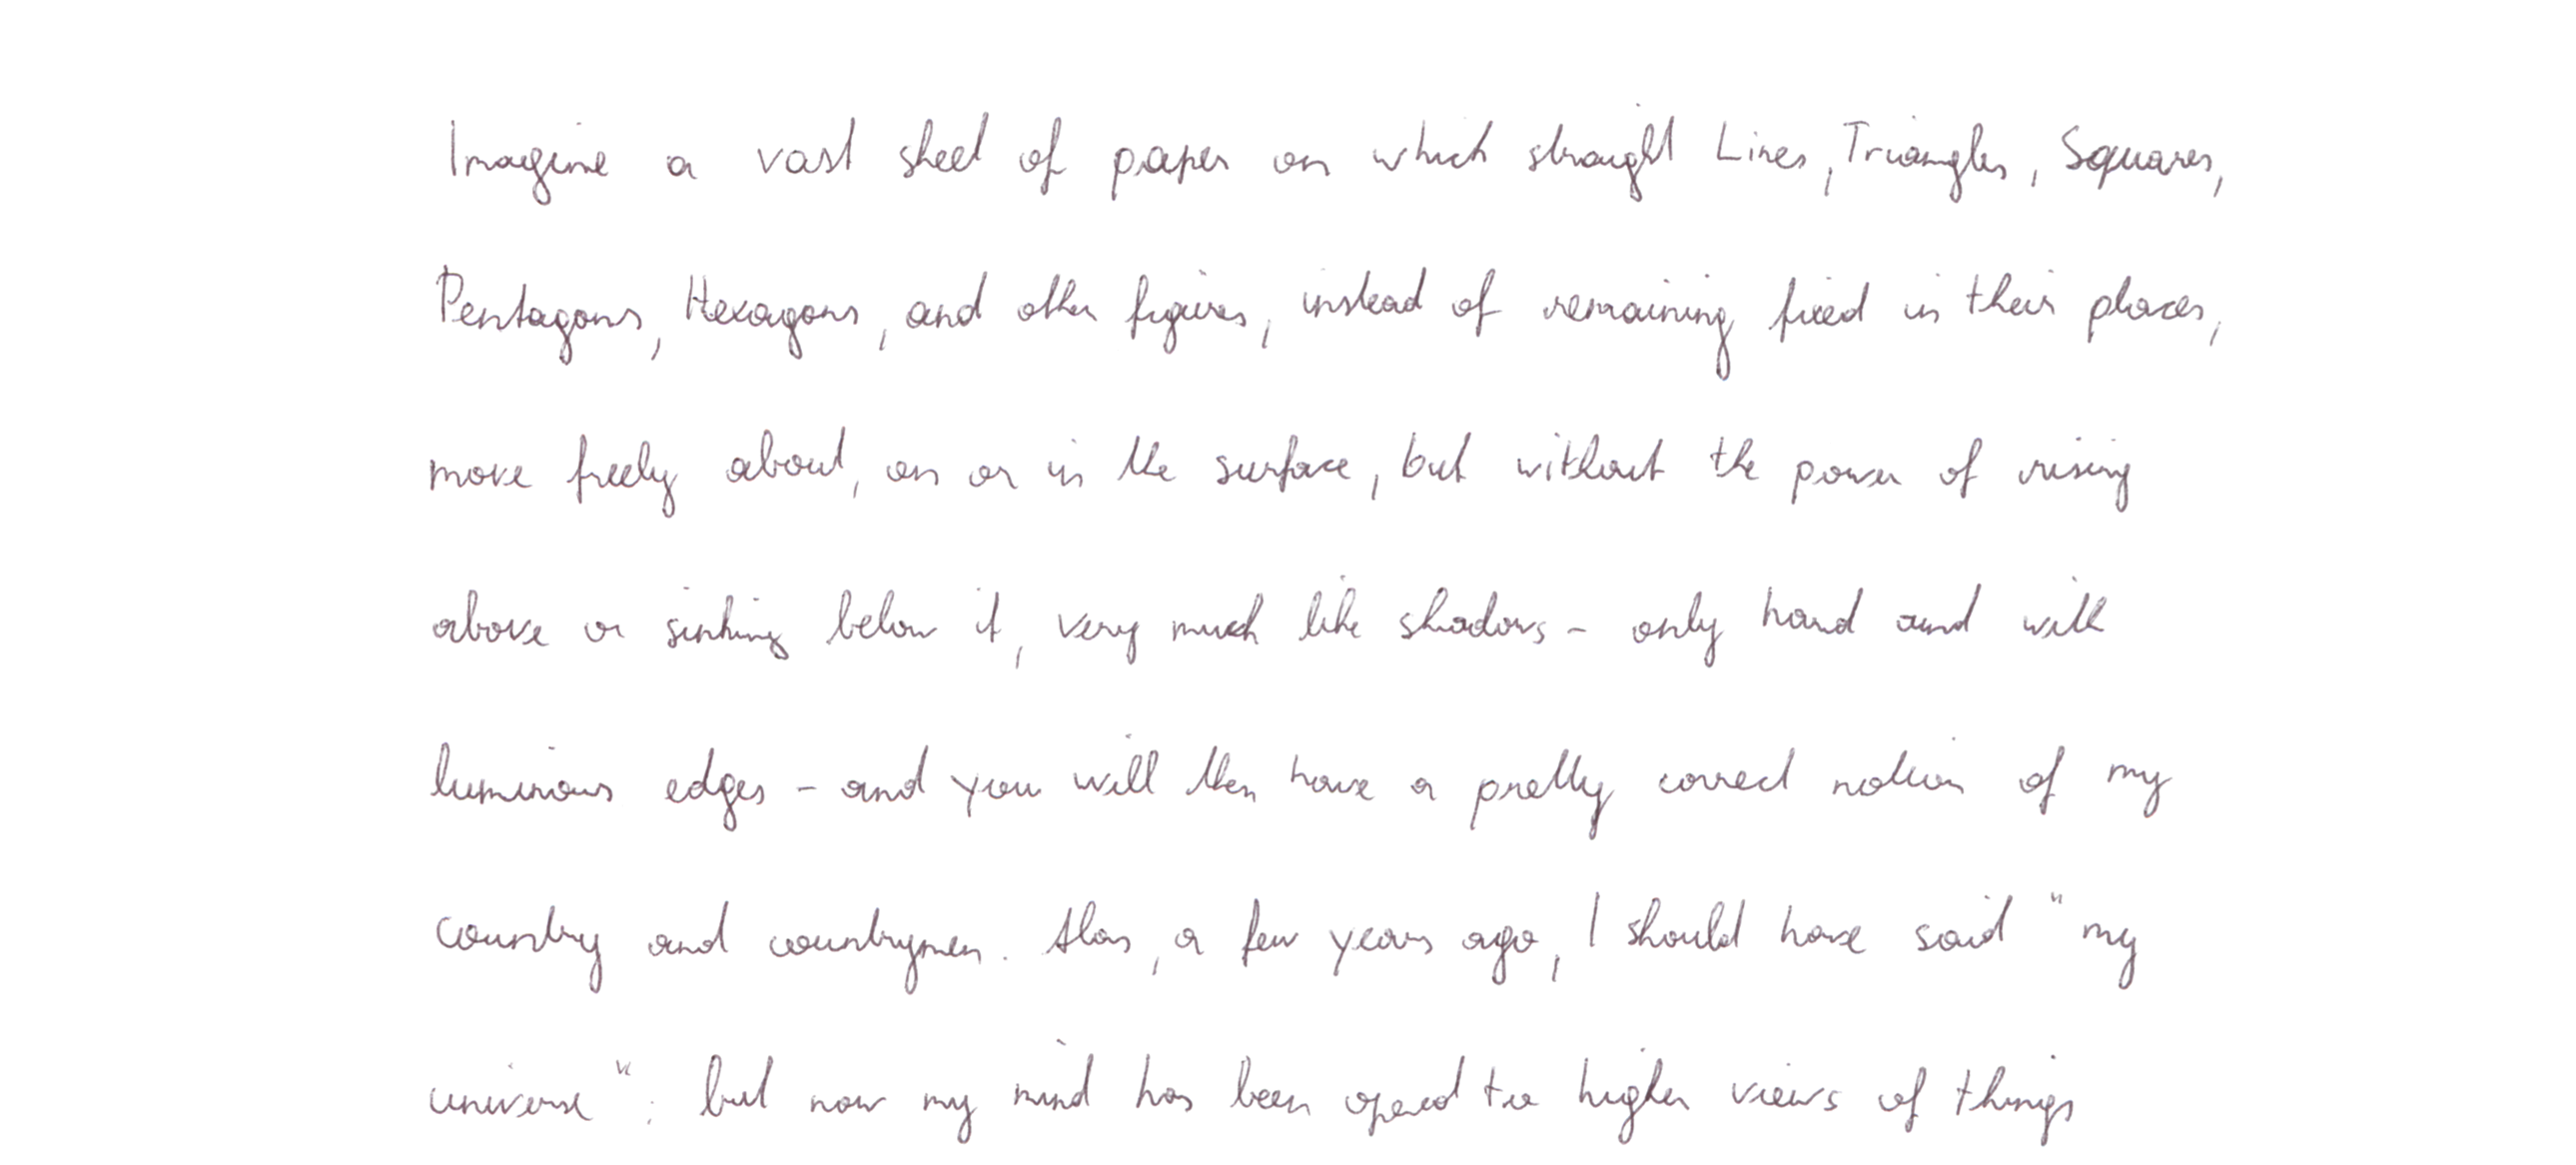 Imagine a vast sheet of paper on which straight Lines, Triangles, Squares,
Pentagons, Hexagons, and other figures, instead of remaining fixed in their places,
move freely about, on or in the surface, but without the power of rising
above or sinking below it, very much like shadows - only hard and with
luminous edges - and you will then have a pretty correct notion of my
country and countrymen. Alas, a few years ago, I should have said "my
universe"; but now my mind has been opened to higher views of things